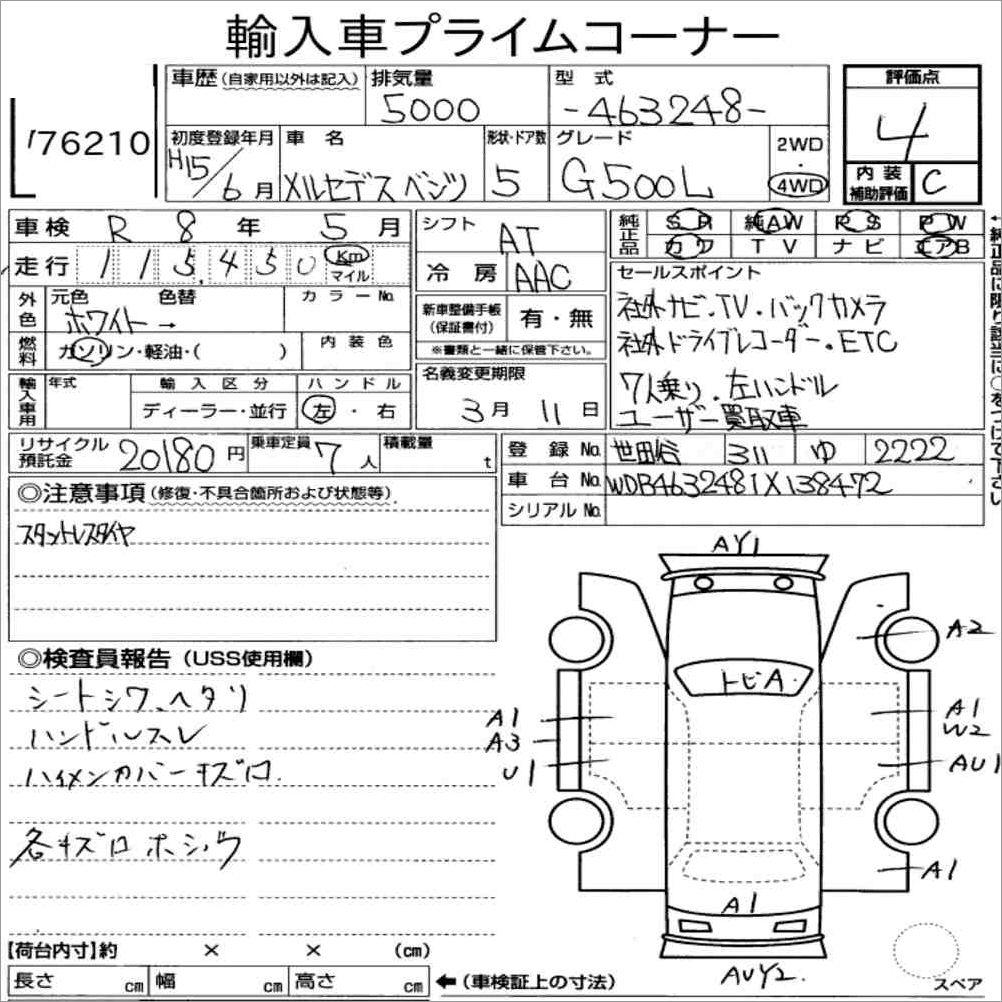 輸入車プライムコーナー
76210
車歴(自家用以外は記入)
排気量
5000
型式
-463248-
評価点
4
初度登録年月
H15/6月
車名
メルセデスベンツ
形状・ドア数
5
グレード
G500L
2WD
・
4WD
内装
補助評価
C
車検 R 8年 5月
シフト
AT
純正品
SR 純AW RS PW
カワ TV ナビ エアB
走行 115,450
Km
マイル
冷房 AAC
外色
元色 色替
ホワイト→
カラーNo.
セールスポイント
社外ナビ・TV・バックカメラ
社外ドライブレコーダー・ETC
7人乗り・左ハンドル
ユーザー買取車
新車整備手帳
(保証書付)
有・無
※書類と一緒に保管下さい。
燃料
ガソリン・軽油・( )
内装色
名義変更期限
3月11日
輸入車用
年式
輸入区分
ディーラー・並行
ハンドル
左・右
リサイクル
預託金
20180円
乗車定員
7人
積載量
t
登録No.
世田谷 311 ゆ 2222
車台No.
WDB4632481X138472
シリアルNo.
←純正品に限り該当に○をつけて下さい
◎注意事項(修復・不具合箇所および状態等)
スタットレスタイヤ
◎検査員報告(USS使用欄)
シートシワ、ヘタリ
ハンドルスレ
ハイメンカバーキズロ
各キズロ
AY1
A2
トビA
A1
A3
U1
A1
W2
AU1
A1
A1
AUY2
スペア
【荷台内寸】約 × × (cm)
長さ cm 幅 cm 高さ cm
←(車検証上の寸法)